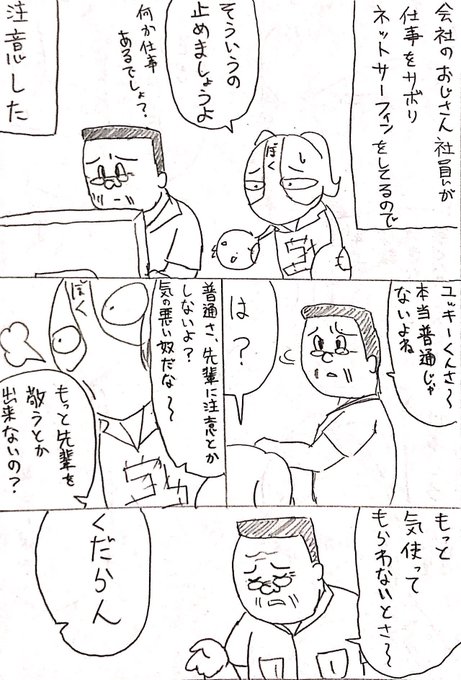 会社のおじさん社員が
仕事をサボり
ネットサーフィンをしてるので
そういうの
止めましょうよ
何か仕事
あるでしょ?
注意した
ぼく
ユッキーくんさ~
本当普通じゃ
ないよね
は?
普通さ、先輩に注意とか
しないよ?
気の悪い奴だな~
ぼく
もっと先輩を
敬うとか
出来ないの?
もっと
気使って
もらわないとさ~
くだらん